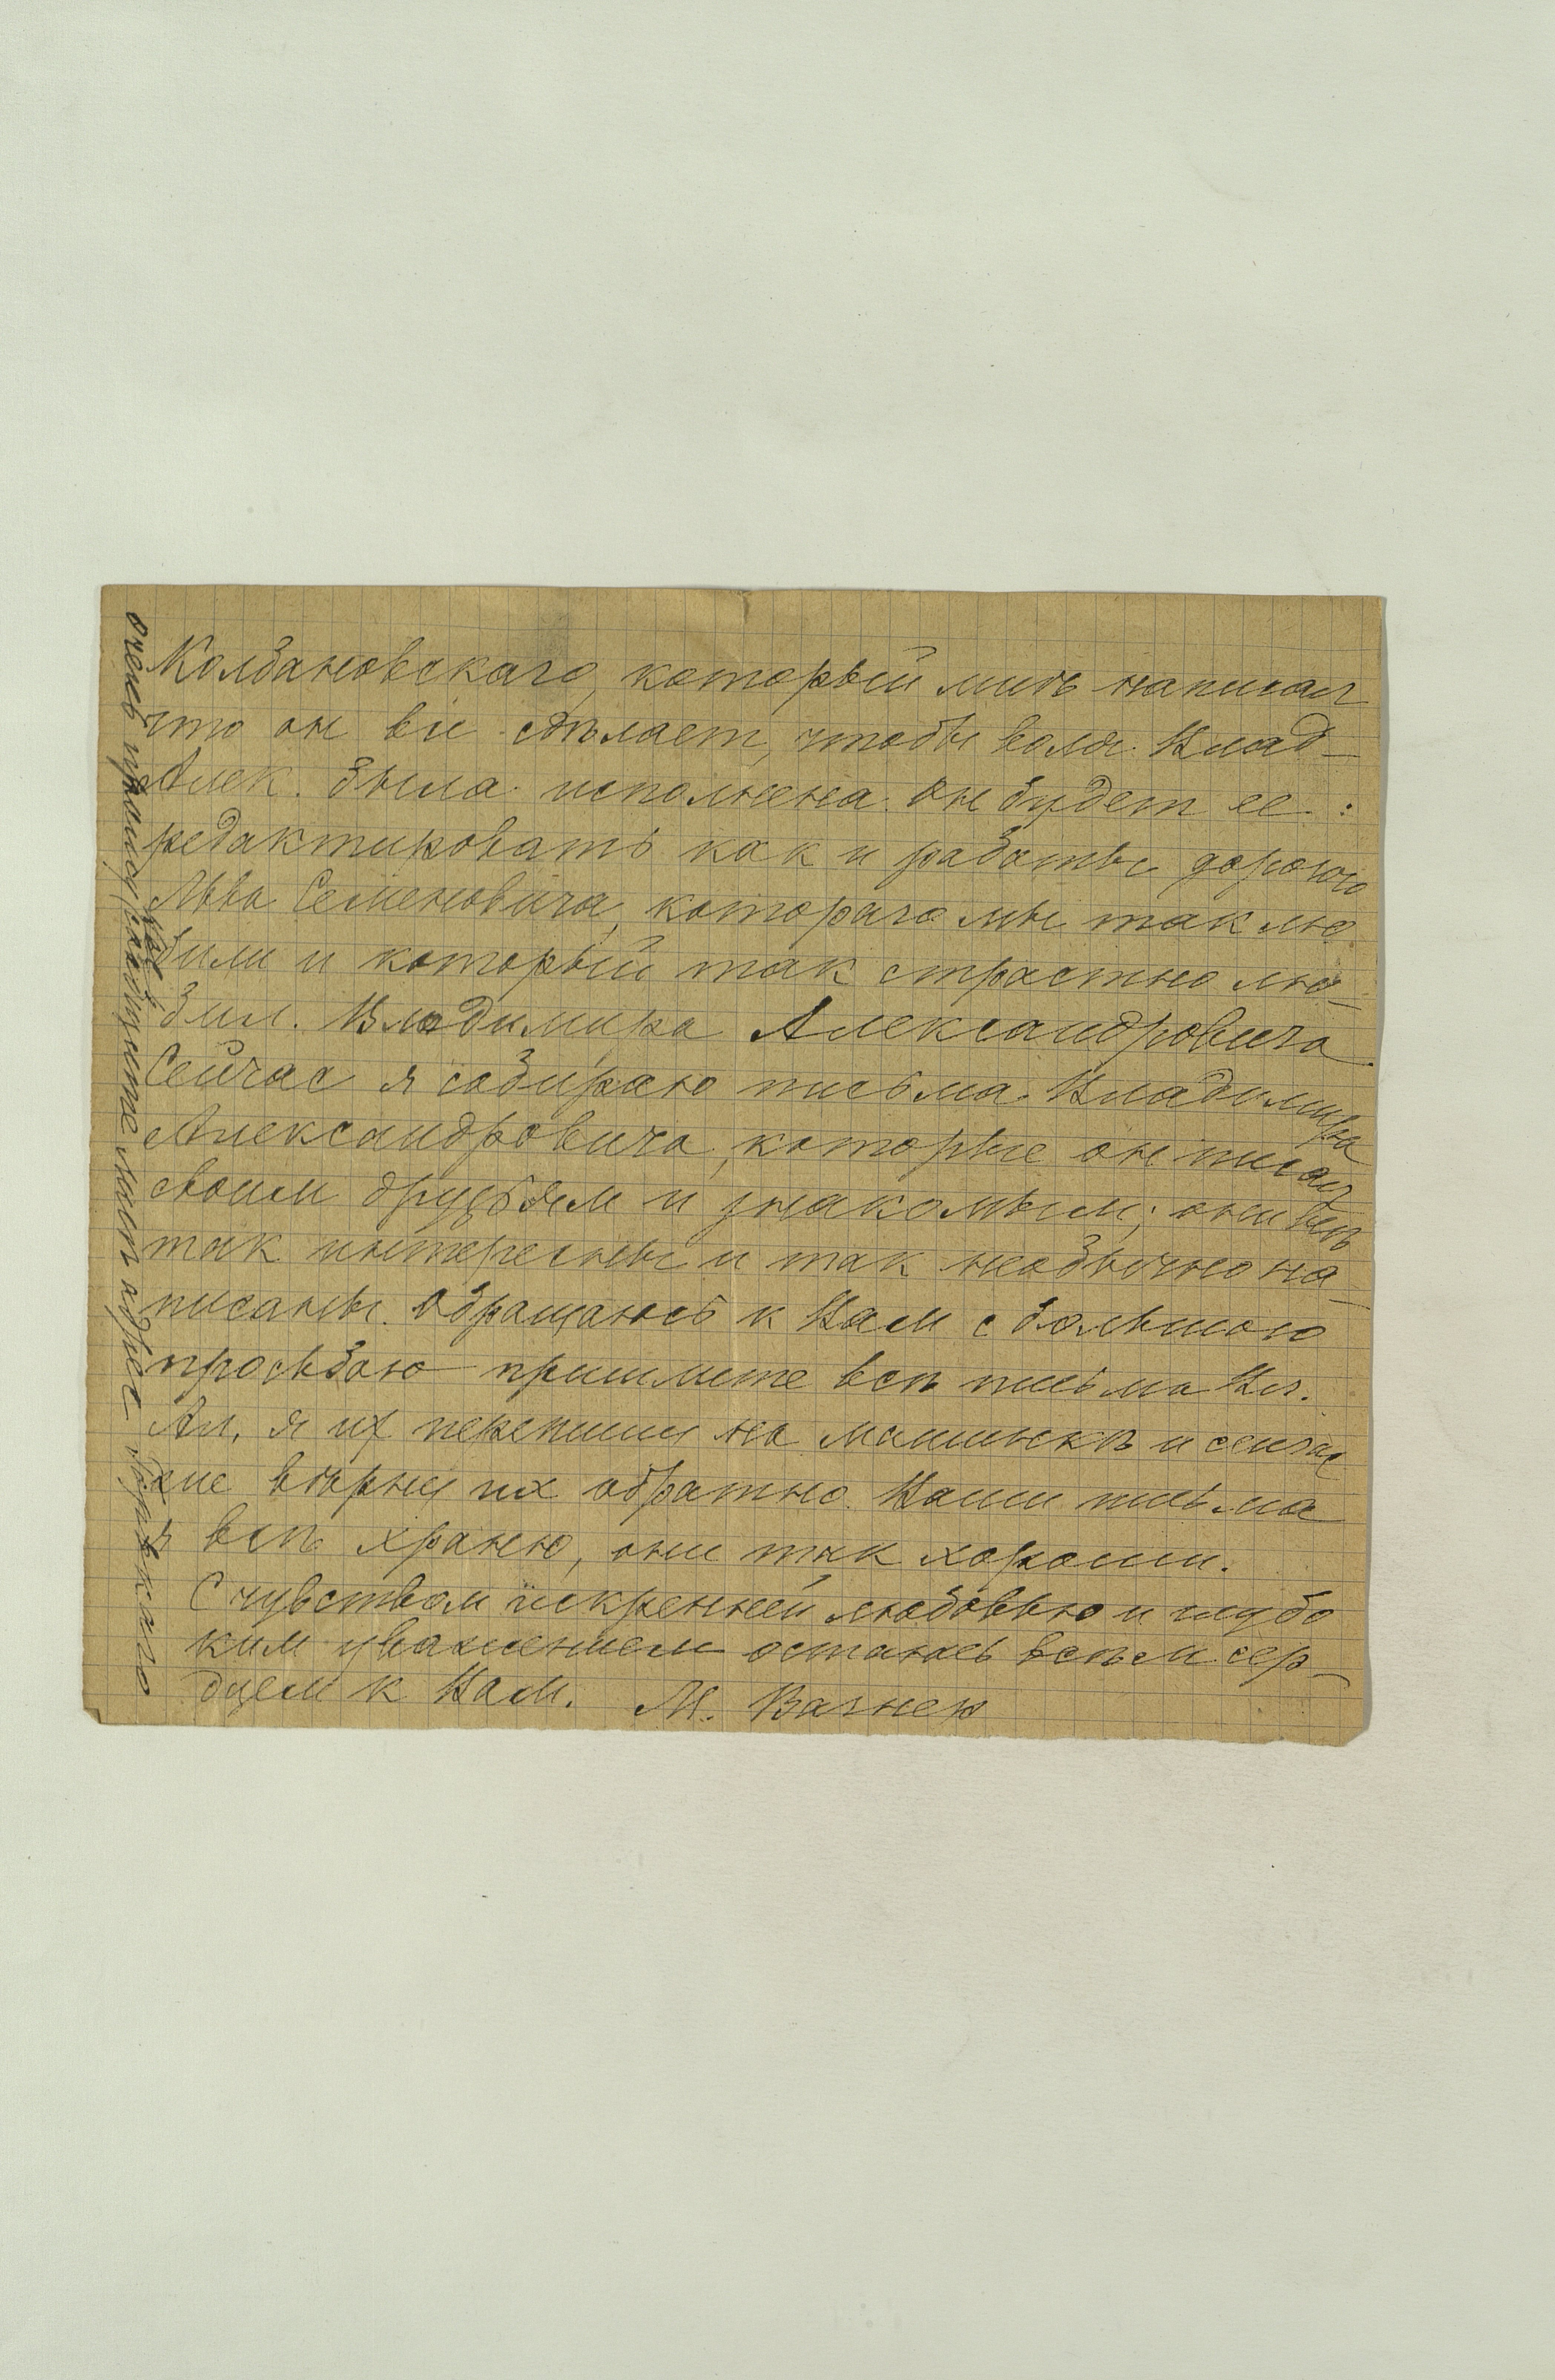 Колбановскаго, который мнѣ написал
что он все сдѣлает, чтобы воля Влад–
Алек. была исполнена. Он будет ее
редактировать как и работы дорогого
Льва Семеновича, котораго мы так лю
били и который так страстно лю–
бил. Владимира Александровича.
Сейчас я собираю письма Владимира
Александровича, которые он писал
своим друзьям и знакомым; они всѣ
так интересны и так необычно на–
писаны. Обращаюсь к Вам с большою
просьбою пришлите всѣ письма Вл.
Ал. я их перепишу на машинкѣ и сейчас
же вѣрну их обратно. Ваши письма
я всѣ храню, они так хороши.
С чувством искренней любовью и глубо
ким уважением остаюсь всѣм сер–
дцем к Вам. М. Вагнер
очень прошу Вас сообщите мнѣ адрес